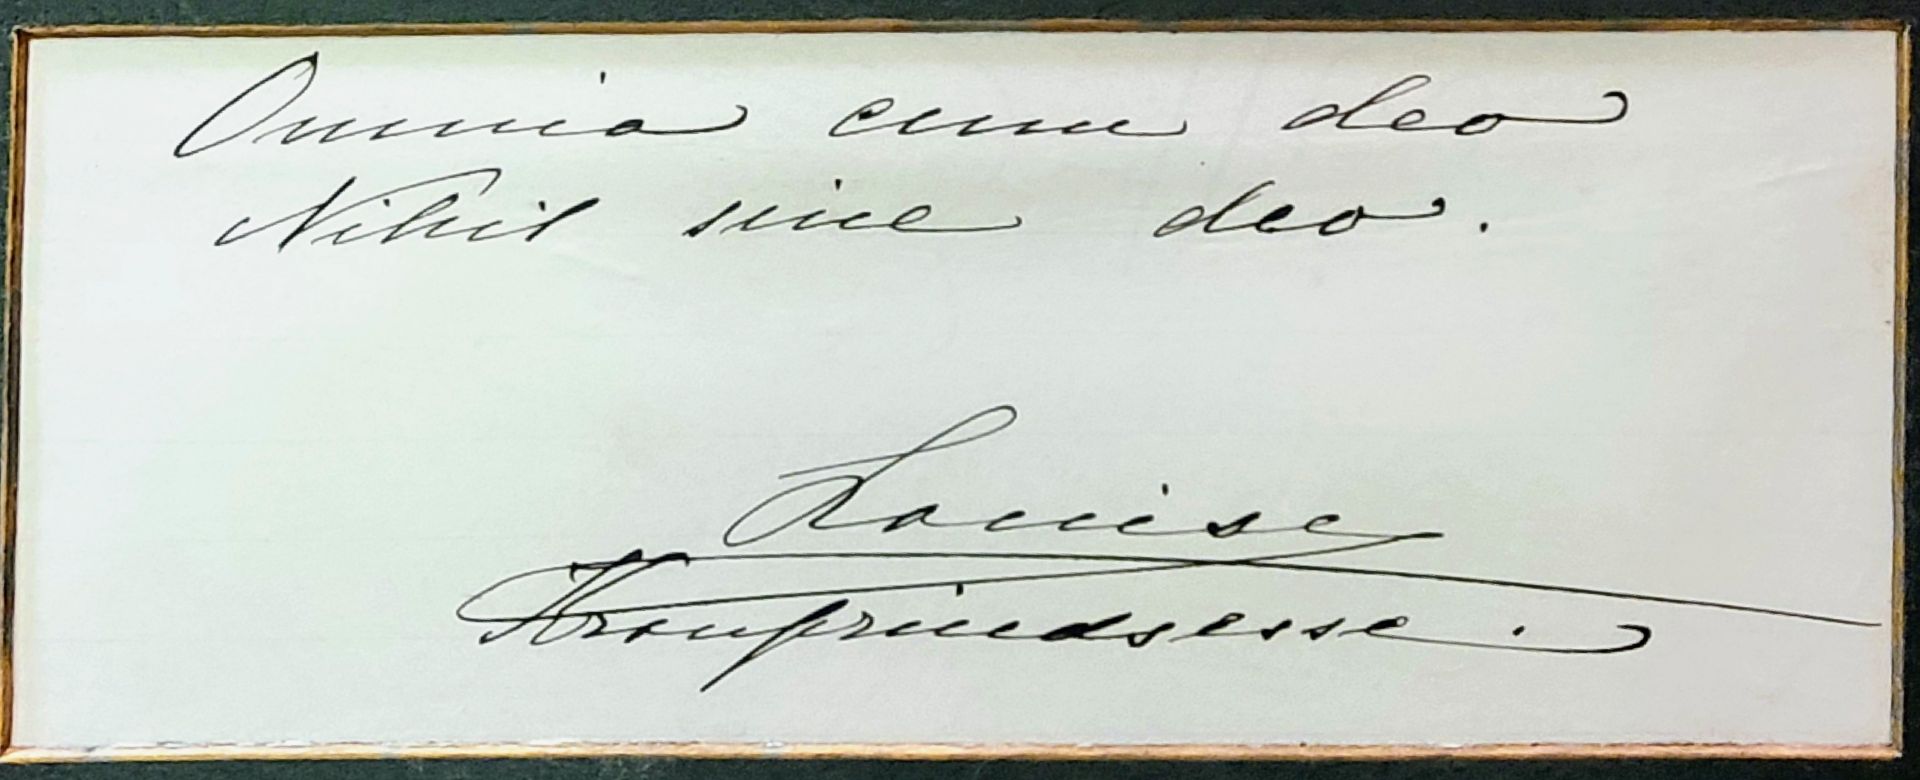 Omnia cum deo
Nihil sine deo.
Louise
Kronprindsesse.